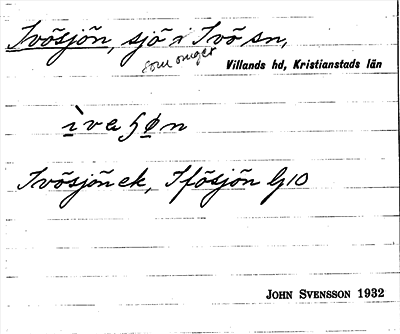 Ivösjön, sjö i Ivö sn,
som omger
Villands hd, Kristianstads län
Ivösjön ek, Ifösjön
John Svensson 1932